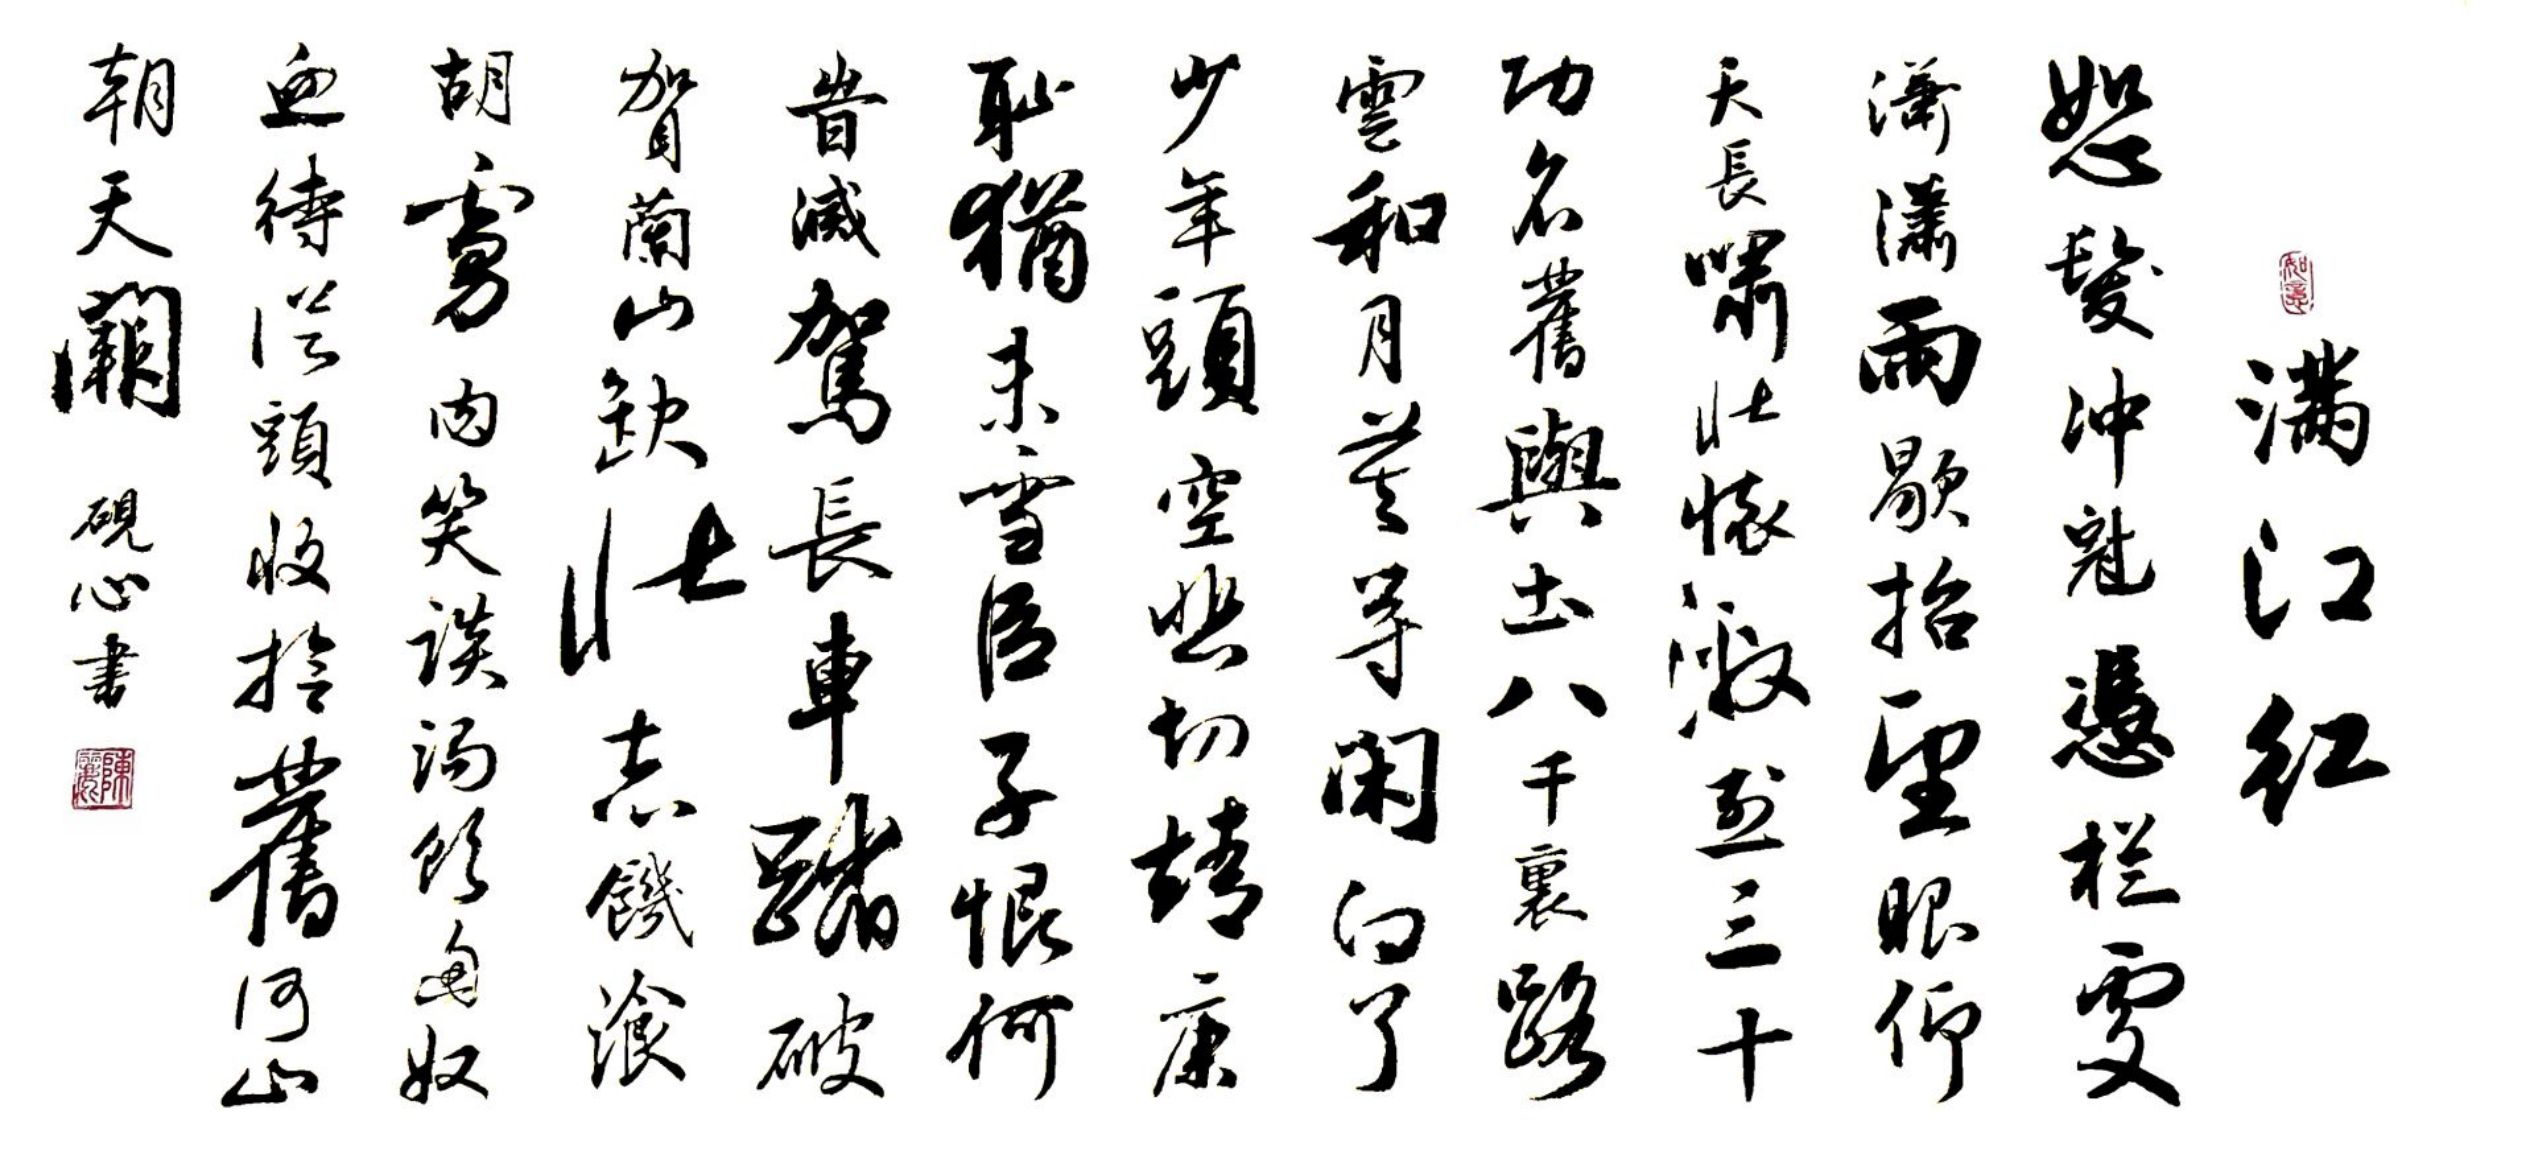 滿江紅
怒髮冲冠憑栏處
瀟瀟雨歇抬望眼仰
天長嘯壯懷激烈三十
功名舊與土八千裏路
雲和月莫等閑白了
少年頭空悲切靖康
恥猶未雪臣子恨何
旹滅駕長車踏破
賀蘭山缺壯志饑湌
胡虜肉笑談渴飲匈奴
血待從頭收拾舊河山
朝天闕 硯心書
如意